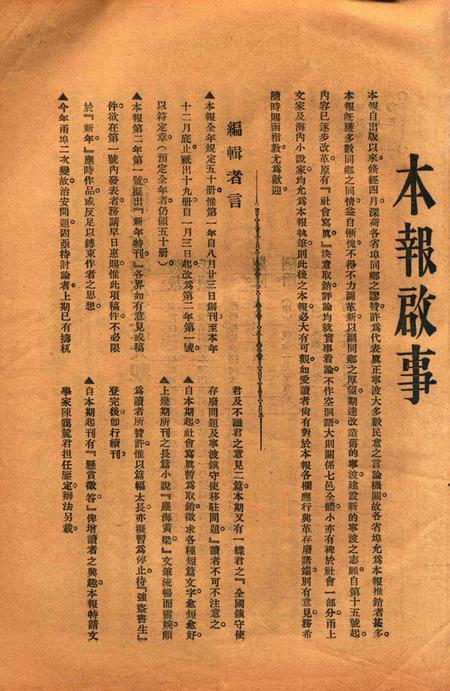 本報啟事
本報自出版以來倏經四月深荷各省埠同鄉之謬贊許為代表眞正寧波大多數民意之言論機關故各省埠允為本報推銷者甚多。
本報旣獲多數同鄉之同情益自慚愧不得不力圖革新以副同鄉之厚望期達改造舊的寧波建設新的寧波之志願自第十五號起
內容已逐步改革原有『社會寫眞』決意取銷評論均就實事着論不作空洞語大則關係七邑全體小亦有裨於社會一部分甬上
文家及海內小說家均允為本報執筆則此後之本報必大有可觀如愛讀者尚有對於本報各欄應行興革存廢諸端別有意見務希
隨時賜函指敎尤為歡迎
編輯者言
▲本報全年規定五十册惟第一年自八月廿三日創刊至本年
十二月底止祇出十九册自一月三日起改為第二年第一號
以符定章(預定全年者仍須五十册)
▲本報第二年第一號擬出『新年特刊』各界如有意見或稿
件欲在第一號內發表者務請早日惠賜惟此項稿件不必限
於『新年』應時作品或反足以縛束作者之思想
▲今年甬埠二次變故治安問題固亟待討論者上期已有擣杌
君及不識君之意見二篇本期又有一蝶君之『全國鎮守使
存廢問題及寧波鎮守使移駐問題』讀者不可不注意之
▲自本期起社會寫眞暫為取銷徵求各種短篇文字愈短愈好
▲上幾期所刊之長篇小說『塵海黃梁』文筆流暢而靈婉頗
為讀者所贊許惟以篇幅太長亦擬暫為停止待『強盜書生』
登完後即行續刊
▲自本期起刊有『懸賞徵答』俾增讀者之興趣本報特請文
學家陳鶴麓君担任鑒定辦法另載。